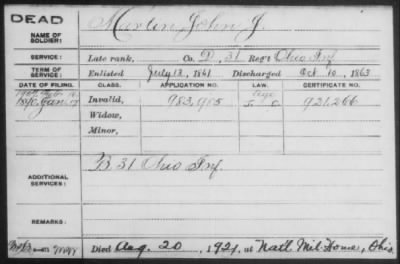 DEAD
NAME OF SOLDIER: Martin John J.
SERVICE: Late rank, Co. D, 31 Reg't Ohio Inf.
TERM OF SERVICE: Enlisted July 13, 1861 Discharged Oct 10, 1863
DATE OF FILING. CLASS. APPLICATION NO. LAW. CERTIFICATE NO.
Invalid, 983,905 921,266
Widow,
Minor,
ADDITIONAL SERVICES: B 31 Ohio Inf.
REMARKS:
Died Aug. 20, 1921, at Nat'l Mil. Home, Ohio